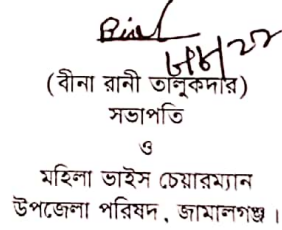 (বীনা রানী তালুকদার)
সভাপতি
ও
মহিলা ভাইস চেয়ারম্যান
উপজেলা পরিষদ, জামালগঞ্জ।